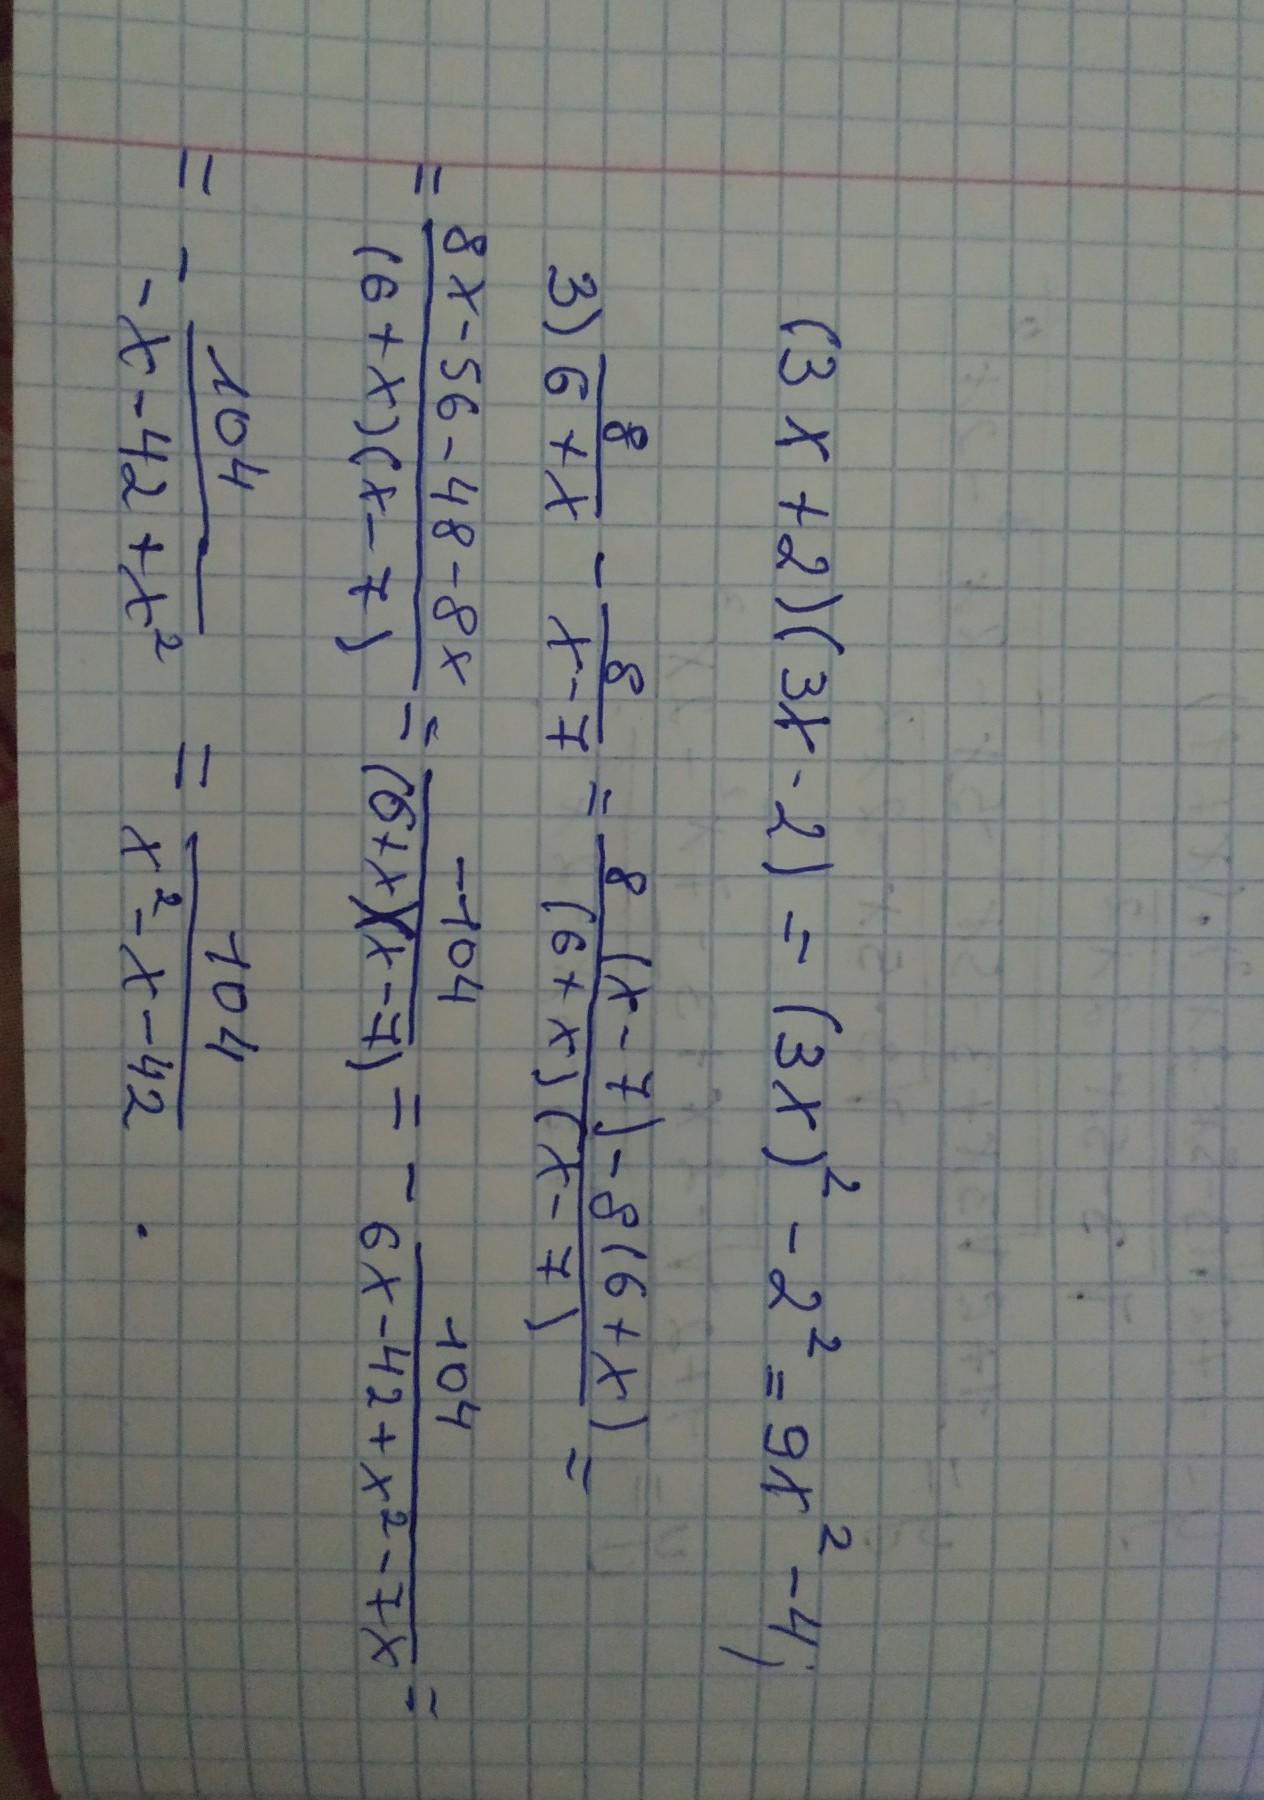 (3x+2)(3x-2) = (3x)² - 2² = 9x² - 4;
3) 8/(6+x) - 8/(x-7) = (8(x-7)-8(6+x))/((6+x)(x-7)) =
= (8x-56-48-8x)/((6+x)(x-7)) = -104/((6+x)(x-7)) = - 104/(6x-42+x²-7x) =
= - 104/(-x-42+x²) = 104/(x²-x-42) .